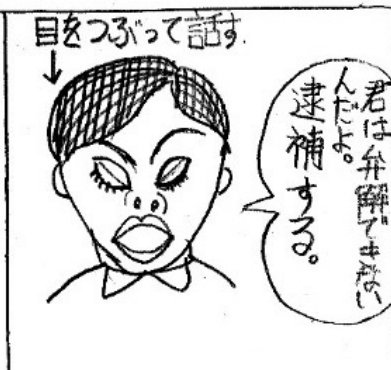 目をつぶって話す.
君は弁解できない
んだよ。
逮補する。